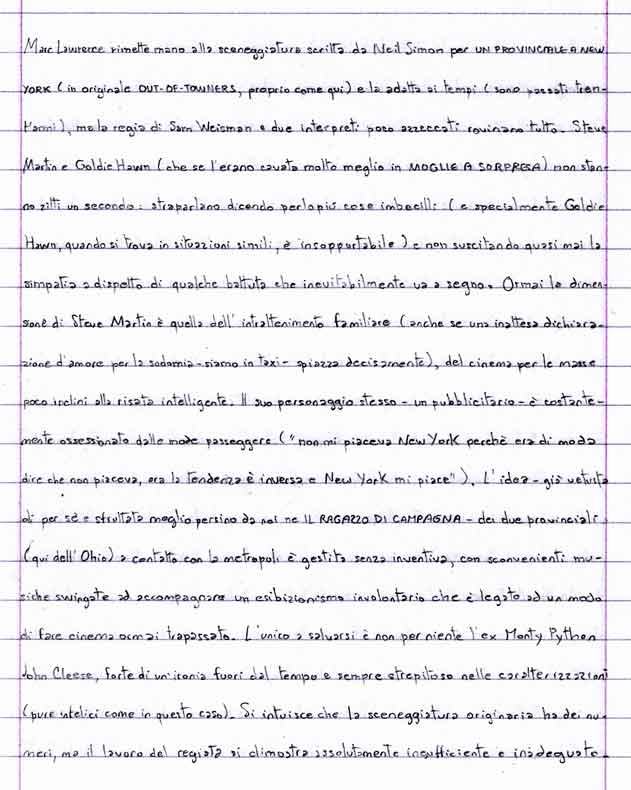 Marc Lawrence rimette mano alla sceneggiatura scritta da Neil Simon per UN PROVINCIALE A NEW
YORK (in originale OUT-OF-TOWNERS, proprio come qui) e la adatta ai tempi (sono passati tren-
t'anni), ma la regia di Sam Weisman e due interpreti poco azzeccati rovinano tutto. Steve
Martin e Goldie Hawn (che se l'erano cavata molto meglio in MOGLIE A SORPRESA) non stan-
no zitti un secondo: straparlano dicendo perlopiù cose imbecilli (e specialmente Goldie
Hawn, quando si trova in situazioni simili, è insopportabile) e non suscitando quasi mai la
simpatia a dispetto di qualche battuta che inevitabilmente va a segno. Ormai la dimen-
sione di Steve Martin è quella dell'intrattenimento familiare (anche se una inattesa dichiara-
zione d'amore per la sodomia - siamo in taxi - spiazza decisamente), del cinema per le masse
poco inclini alla risata intelligente. Il suo personaggio stesso - un pubblicitario - è costante-
mente ossessionato dalle mode passeggere ("non mi piaceva New York perchè era di moda
dire che non piaceva, ora la tendenza è inversa e New York mi piace"). L'idea - già vetusta
di per sè e sfruttata meglio persino da noi ne IL RAGAZZO DI CAMPAGNA - dei due provinciali
(qui dell'Ohio) a contatto con la metropoli è gestita senza inventiva, con sconvenienti mu-
siche swingate ad accompagnare un esibizionismo involontario che è legato ad un modo
di fare cinema ormai trapassato. L'unico a salvarsi è non per niente l'ex Monty Python
John Cleese, forte di un'ironia fuori dal tempo e sempre strepitoso nelle caratterizzazioni
(pure utelici come in questo caso). Si intuisce che la sceneggiatura originaria ha dei nu-
meri, ma il lavoro del regista si dimostra assolutamente insufficiente e inadeguato.